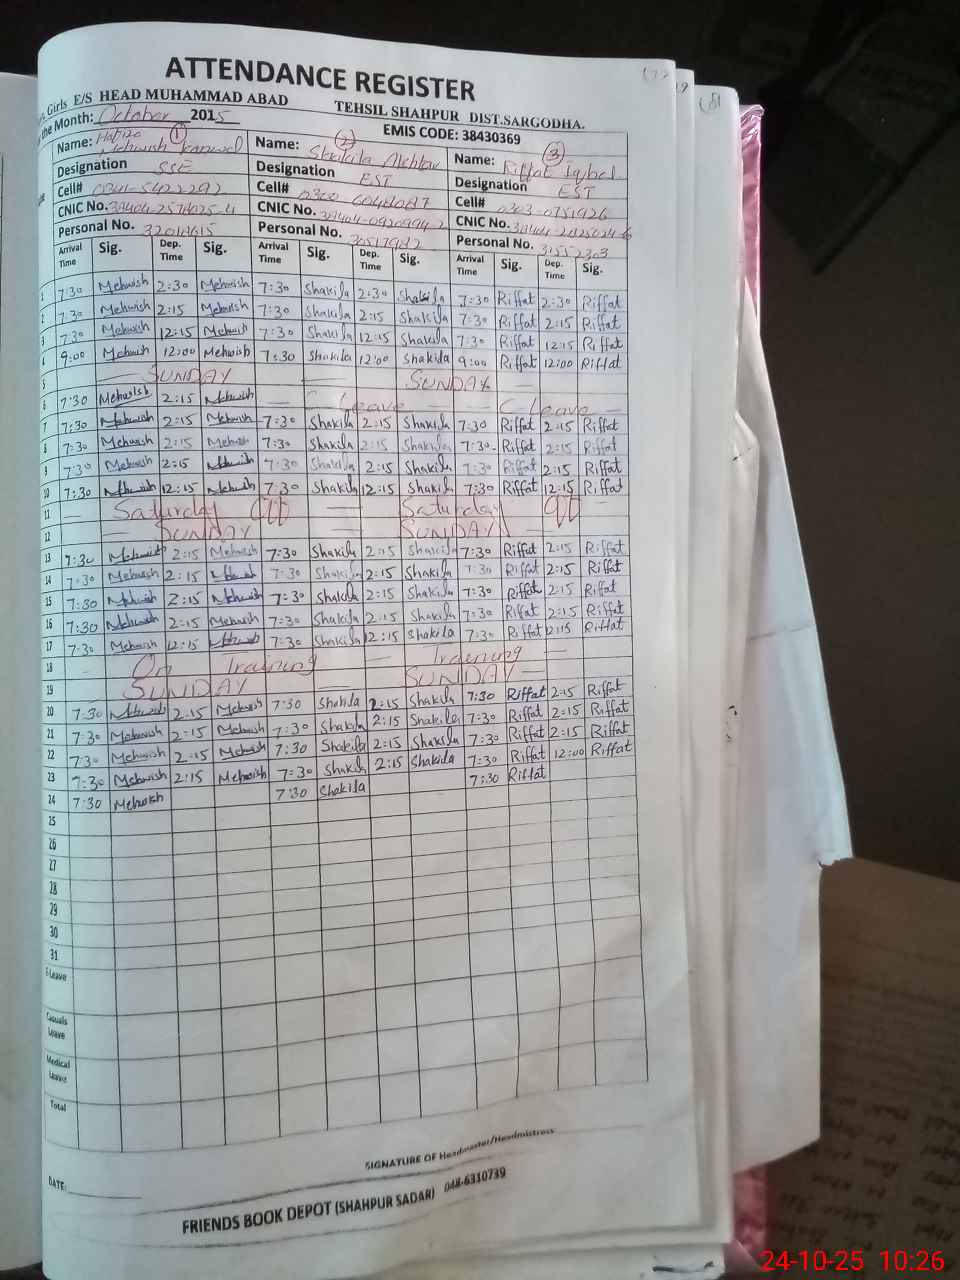 ATTENDANCE REGISTER
Girls E/S HEAD MUHAMMAD ABAD TEHSIL SHAHPUR DIST.SARGODHA.
the Month: October 2015 EMIS CODE: 38430369
Name: Hafiza Mehwish Kanwal ① Name: Shakila Akhtar ② Name: Riffat Iqbal ③
Designation SSE Designation EST Designation EST
Cell# Cell# 0300 6048087 Cell# 0303-0751926
CNIC No. CNIC No. CNIC No.
Personal No. Personal No. 30517982 Personal No. 31552303
Arrival Time Sig. Dep. Time Sig. Arrival Time Sig. Dep. Time Sig. Arrival Time Sig. Dep. Time Sig.
1 7:30 Mehwish 2:30 Mehwish 7:30 Shakila 2:30 Shakila 7:30 Riffat 2:30 Riffat
2 7:30 Mehwish 2:15 Mehwish 7:30 Shakila 2:15 Shakila 7:30 Riffat 2:15 Riffat
3 7:30 Mehwish 12:15 Mehwish 7:30 Shakila 12:15 Shakila 7:30 Riffat 12:15 Riffat
4 9:00 Mehwish 12:00 Mehwish 7:30 Shakila 12:00 Shakila 9:00 Riffat 12:00 Riffat
5 — SUNDAY — SUNDAY —
6 7:30 Mehwish 2:15 Mehwish — C Leave — C-Leave —
7 7:30 Mehwish 2:15 Mehwish 7:30 Shakila 2:15 Shakila 7:30 Riffat 2:15 Riffat
8 7:30 Mehwish 2:15 Mehwish 7:30 Shakila 2:15 Shakila 7:30 Riffat 2:15 Riffat
9 7:30 Mehwish 2:15 Mehwish 7:30 Shakila 2:15 Shakila 7:30 Riffat 2:15 Riffat
10 7:30 Mehwish 12:15 Mehwish 7:30 Shakila 12:15 Shakila 7:30 Riffat 12:15 Riffat
11 — Saturday Off — Saturday Off
12 — SUNDAY — SUNDAY —
13 7:30 Mehwish 2:15 Mehwish 7:30 Shakila 2:15 Shakila 7:30 Riffat 2:15 Riffat
14 7:30 Mehwish 2:15 Mehwish 7:30 Shakila 2:15 Shakila 7:30 Riffat 2:15 Riffat
15 7:30 Mehwish 2:15 Mehwish 7:30 Shakila 2:15 Shakila 7:30 Riffat 2:15 Riffat
16 7:30 Mehwish 2:15 Mehwish 7:30 Shakila 2:15 Shakila 7:30 Riffat 2:15 Riffat
17 7:30 Mehwish 12:15 Mehwish 7:30 Shakila 12:15 Shakila 7:30 Riffat 12:15 Riffat
18 — On Training — Training —
19 — SUNDAY — SUNDAY —
20 7:30 Mehwish 2:15 Mehwish 7:30 Shakila 2:15 Shakila 7:30 Riffat 2:15 Riffat
21 7:30 Mehwish 2:15 Mehwish 7:30 Shakila 2:15 Shakila 7:30 Riffat 2:15 Riffat
22 7:30 Mehwish 2:15 Mehwish 7:30 Shakila 2:15 Shakila 7:30 Riffat 2:15 Riffat
23 7:30 Mehwish 2:15 Mehwish 7:30 Shakila 2:15 Shakila 7:30 Riffat 12:00 Riffat
24 7:30 Mehwish 7:30 Shakila 7:30 Riffat
25
26
27
28
29
30
31
Leave
Casuals Leave
Medical Leave
Total
SIGNATURE OF Headmaster/Headmistress
DATE:
FRIENDS BOOK DEPOT (SHAHPUR SADAR) 048-6310739
24-10-25 10:26